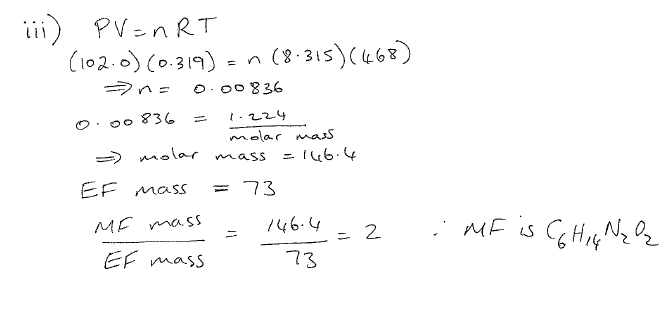 iii) PV = nRT
(102.0)(0.319) = n (8.315)(468)
⇒ n = 0.00836
0.00836 = 1.224 / molar mass
⇒ molar mass = 146.4
EF mass = 73
MF mass / EF mass = 146.4 / 73 = 2 ∴ MF is C₆H₁₄N₂O₂